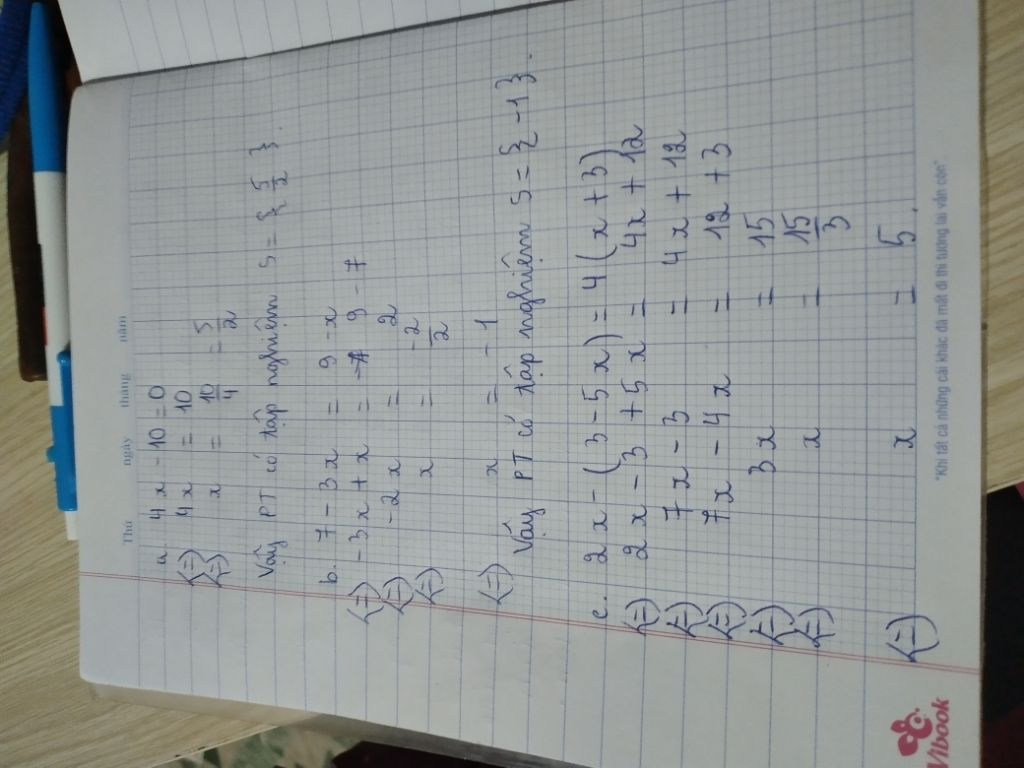 Thứ ngày tháng năm
a. 4x - 10 = 0
<=> 4x = 10
<=> x = 10/4 = 5/2
Vậy PT có tập nghiệm S = { 5/2 }.
b. 7 - 3x = 9 - x
<=> -3x + x = 9 - 7
<=> -2x = 2
<=> x = -2/2
<=> x = -1
Vậy PT có tập nghiệm S = { -1 }.
c. 2x - (3 - 5x) = 4(x + 3)
<=> 2x - 3 + 5x = 4x + 12
<=> 7x - 3 = 4x + 12
<=> 7x - 4x = 12 + 3
<=> 3x = 15
<=> x = 15/3
<=> x = 5.
"Khi tất cả những cái khác đã mất đi thì tương lai vẫn còn"
Vibook